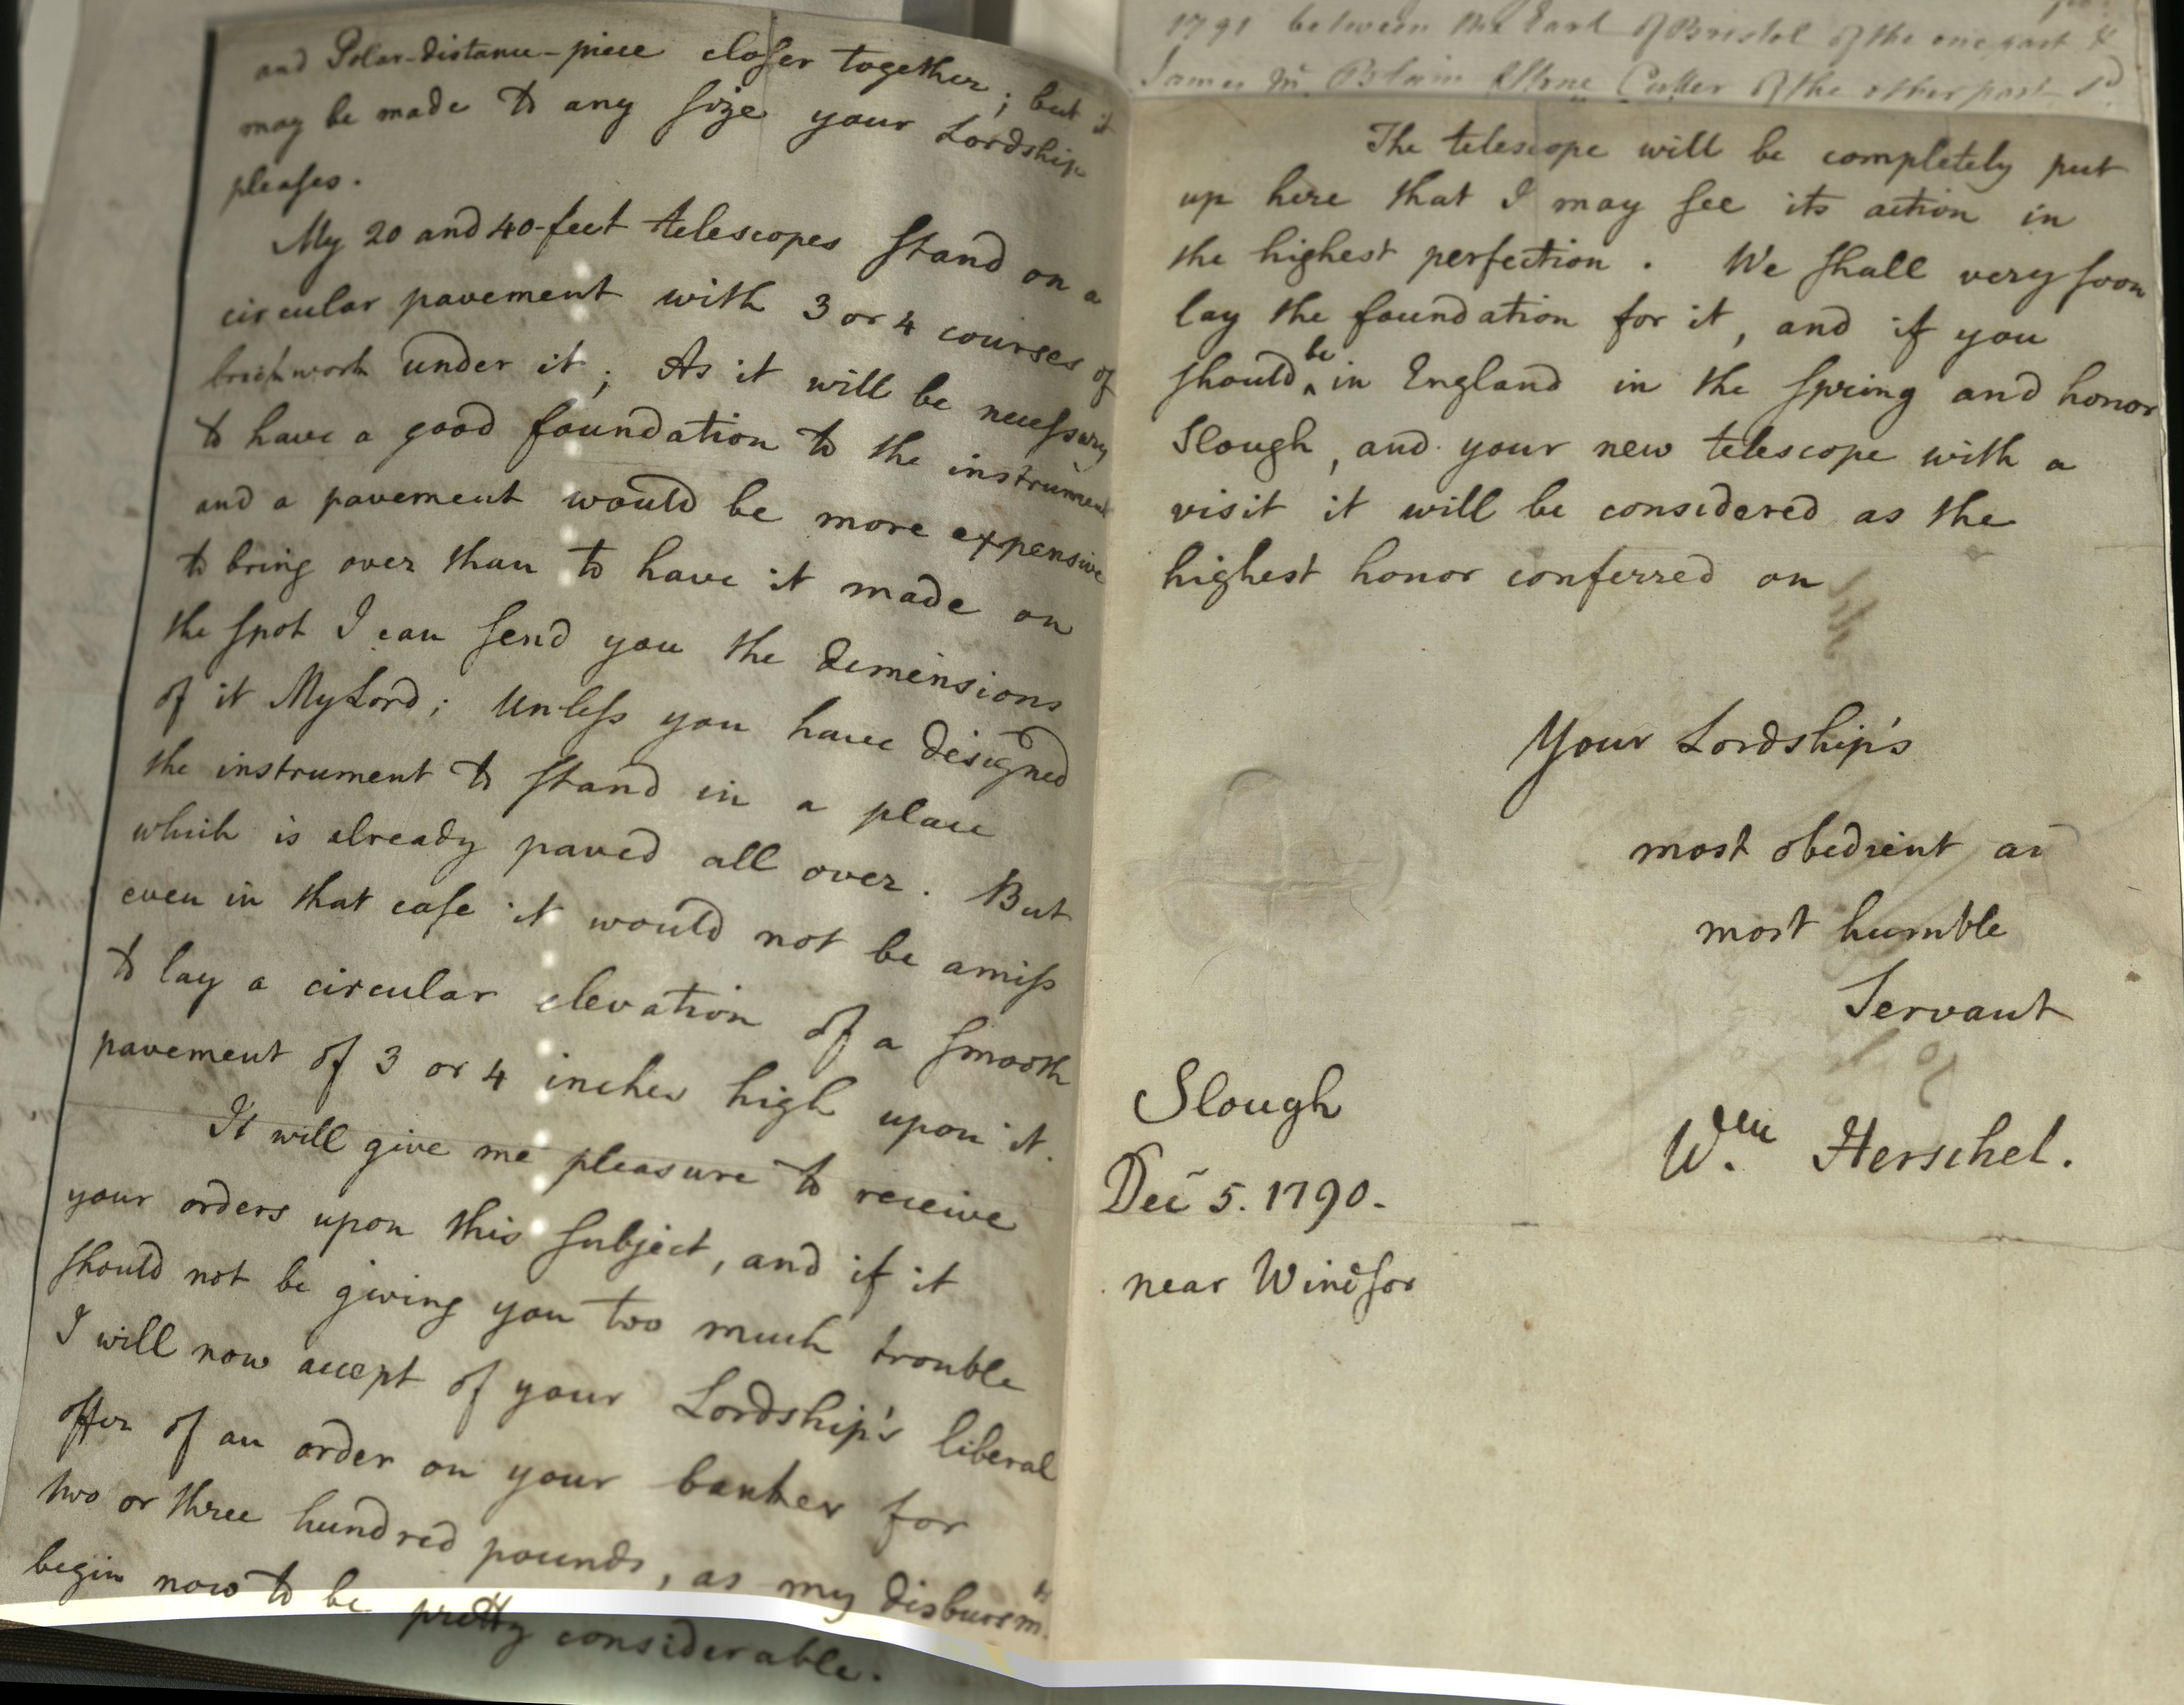 and Polar-distance-piece closer together; but it
may be made to any size your Lordship
pleases.
My 20 and 40-feet telescopes stand on a
circular pavement with 3 or 4 courses of
brickwork under it; As it will be necessary
to have a good foundation to the instrument
and a pavement would be more expensive
to bring over than to have it made on
the spot I can send you the demensions
of it My Lord; Unless you have designed
the instrument to stand in a place
which is already paved all over. But
even in that case it would not be amiss
to lay a circular elevation of a smooth
pavement of 3 or 4 inches high upon it.
It will give me pleasure to receive
your orders upon this subject, and if it
should not be giving you too much trouble
I will now accept of your Lordship's liberal
offer of an order on your banker for
two or three hundred pounds, as my disbursm.ts
begin now to be pretty considerable.
1791 between the Earl of Bristol of the one part &
James Mc Blain Stone Cutter of the other part
The telescope will be completely put
up here that I may see its action in
the highest perfection. We shall very soon
lay the foundation for it, and if you
should ^be in England in the spring and honor
Slough, and your new telescope with a
visit it will be considered as the
highest honor conferred on
Your Lordship's
most obedient an
most humble
Servant
Wm. Herschel.
Slough
Dec 5. 1790.
near Windsor